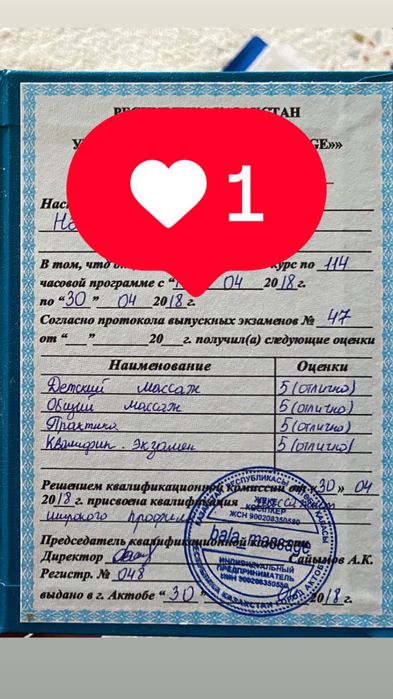 1
GE»»
Нас
На
В том, что
курс по 114
часовой программе с “ 04 2018 г.
по “30” 04 2018 г.
Согласно протокола выпускных экзаменов № 47
от “___”________20___г. получил(а) следующие оценки
Наименование Оценки
Детский массаж 5 (отлично)
Общий массаж 5 (отлично)
Практика 5 (отлично)
Квалифик. экзамен 5 (отлично)
Решением квалификационной комиссии от «30» 04
2018 г. присвоена квалификация
широкого профиля
Председатель квалификационной
Директор Сайымов А.К.
Регистр. № 048
выдано в г. Актобе “30” 2018 г.
ЖЕКЕ
КӘСІПКЕР
ЖСН 900208350580
bala_massage
ИНДИВИДУАЛЬНЫЙ
ПРЕДПРИНИМАТЕЛЬ
ИИН 900208350580